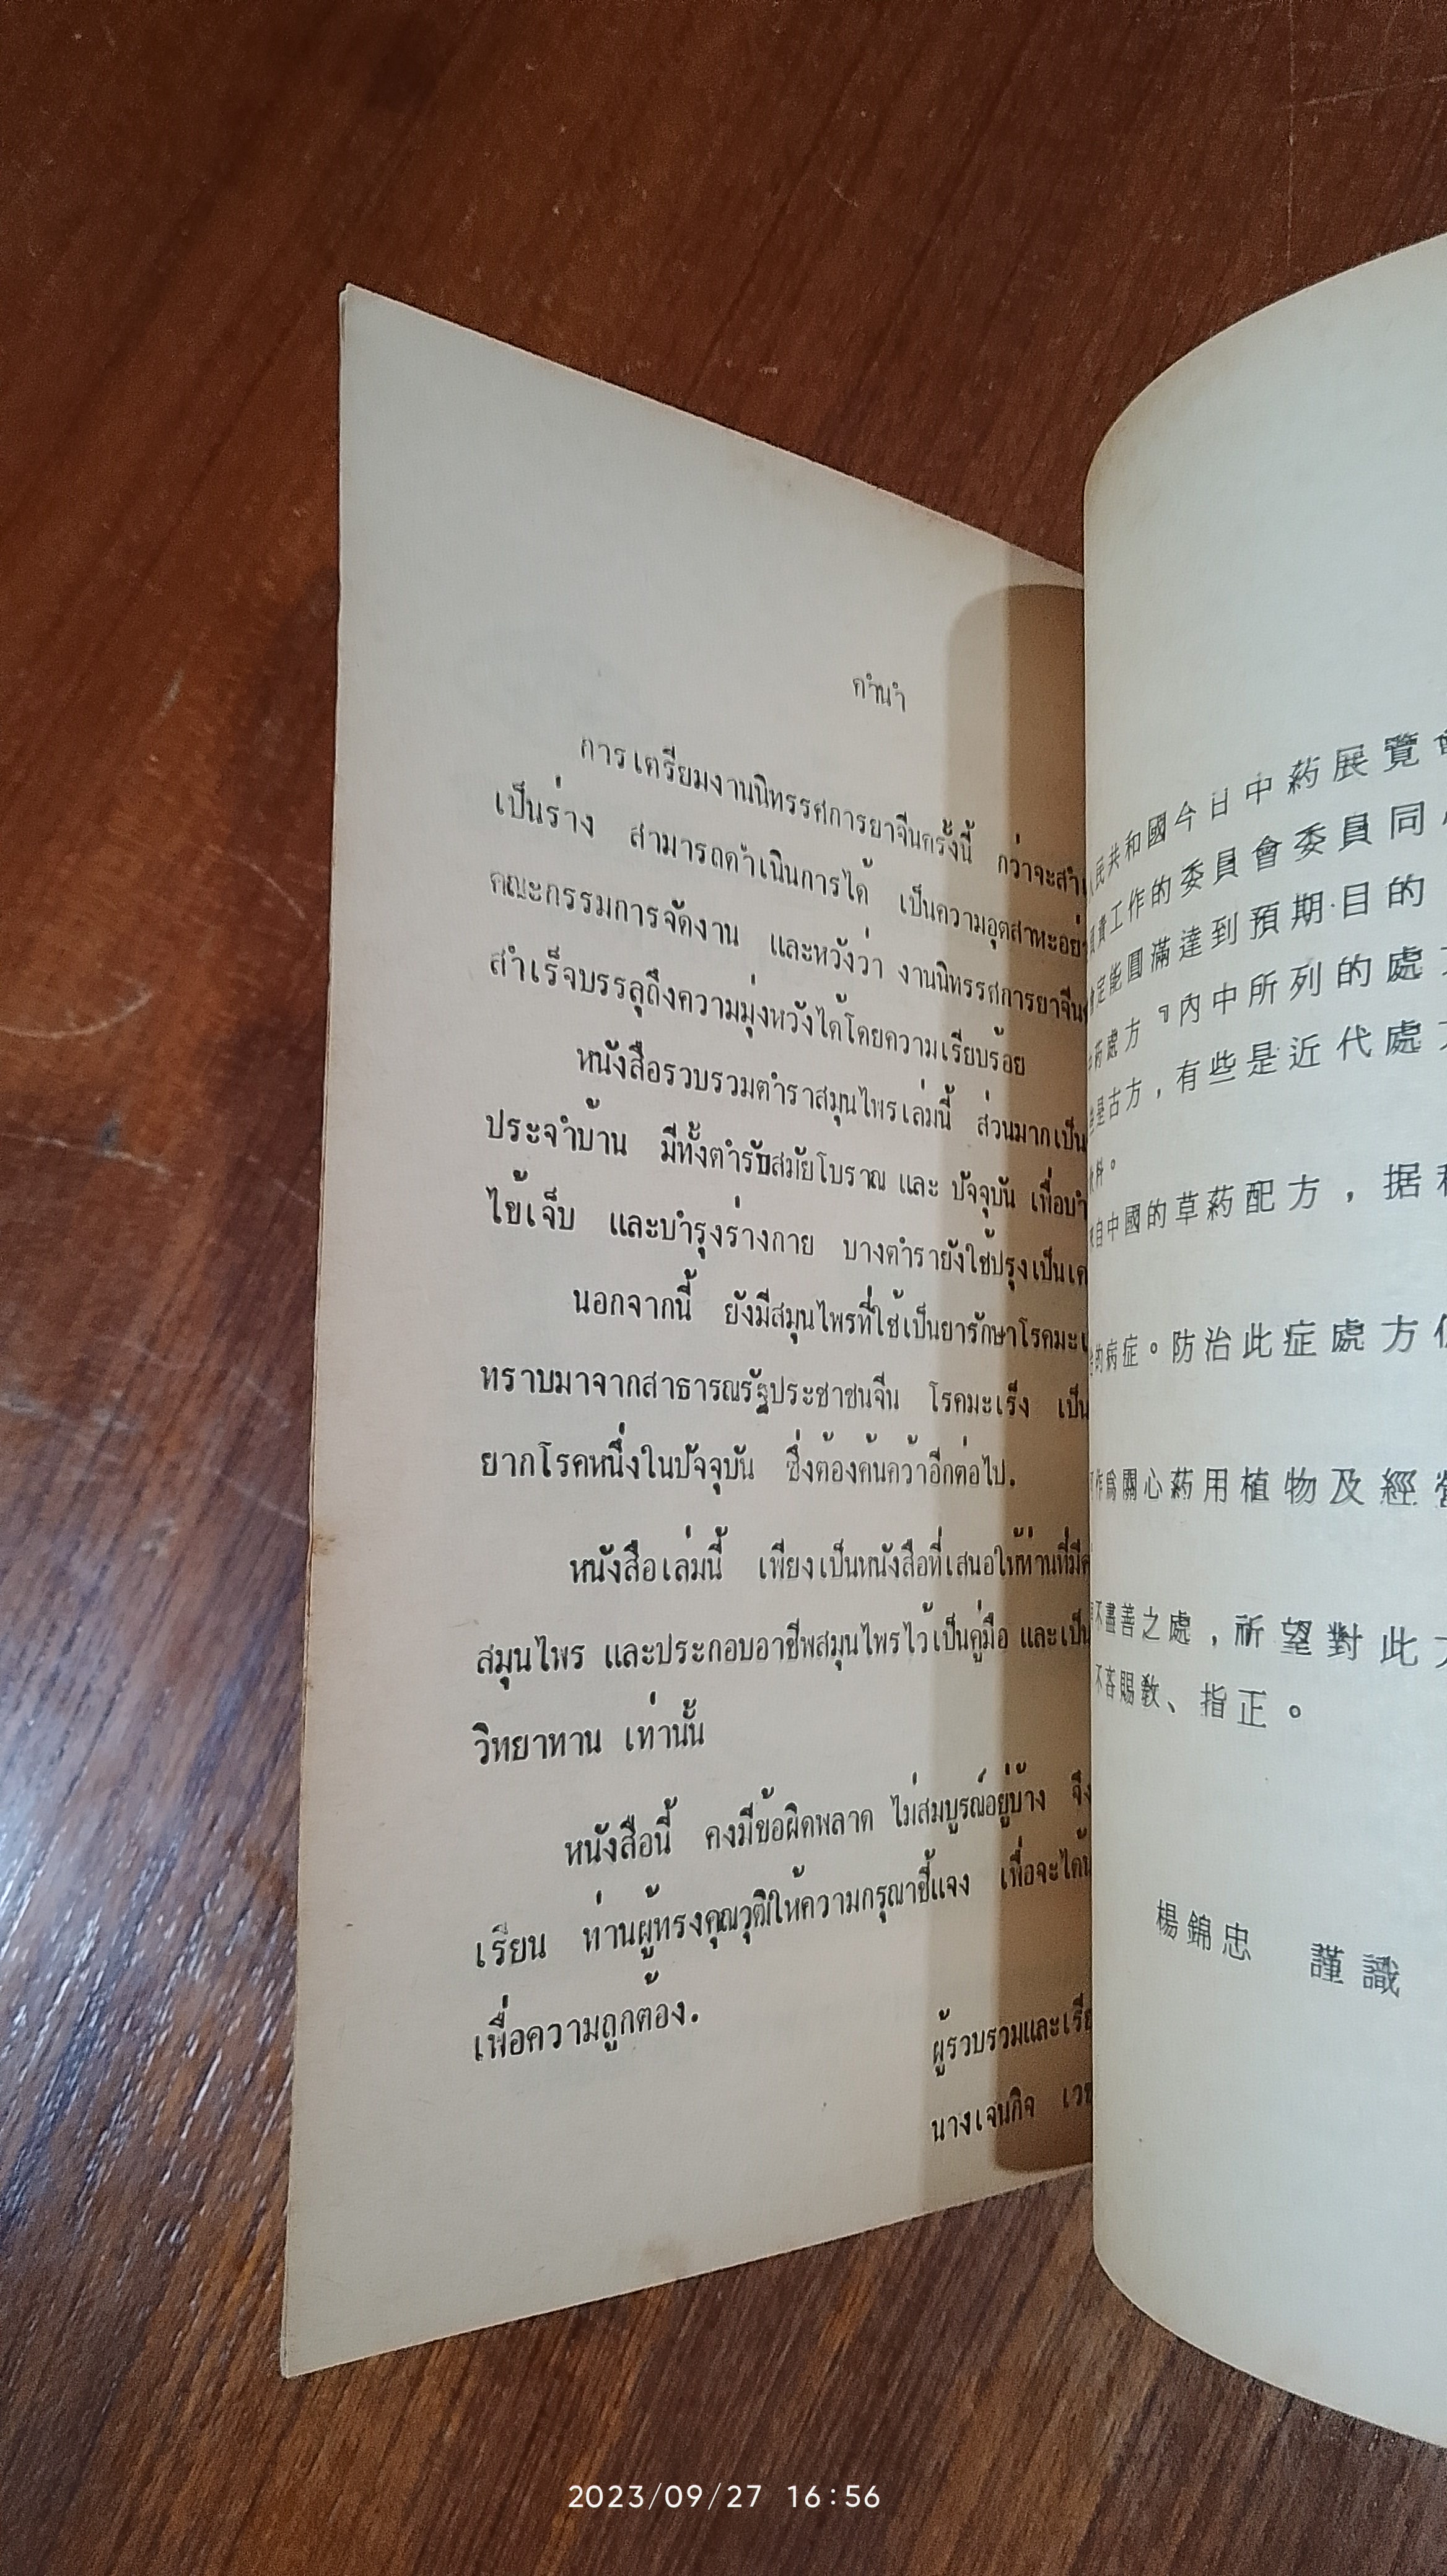 คำนำ
การเตรียมงานนิทรรศการยาจีนครั้งนี้ กว่าจะสำ
เป็นร่าง สามารถดำเนินการได้ เป็นความอุตสาหะอย่
คณะกรรมการจัดงาน และหวังว่า งานนิทรรศการยาจีน
สำเร็จบรรลุถึงความมุ่งหวังได้โดยความเรียบร้อย
หนังสือรวบรวมตำราสมุนไพรเล่มนี้ ส่วนมากเป็น
ประจำบ้าน มีทั้งตำรับสมัยโบราณ และ ปัจจุบัน เพื่อบำ
ไข้เจ็บ และบำรุงร่างกาย บางตำรายังใช้ปรุงเป็นเค
นอกจากนี้ ยังมีสมุนไพรที่ใช้เป็นยารักษาโรคมะเ
ทราบมาจากสาธารณรัฐประชาชนจีน โรคมะเร็ง เป็น
ยากโรคหนึ่งในปัจจุบัน ซึ่งต้องค้นคว้าอีกต่อไป.
หนังสือเล่มนี้ เพียงเป็นหนังสือที่เสนอให้ท่านที่มี
สมุนไพร และประกอบอาชีพสมุนไพรไว้เป็นคู่มือ และเป็น
วิทยาทาน เท่านั้น
หนังสือนี้ คงมีข้อผิดพลาด ไม่สมบูรณ์อยู่บ้าง จึง
เรียน ท่านผู้ทรงคุณวุฒิให้ความกรุณาชี้แจง เพื่อจะได้
เพื่อความถูกต้อง.
ผู้รวบรวมและเรี
นางเจนกิจ เวช
民共和國今日中葯展覽
責工作的委員會委員同
定能圓滿達到預期目的
葯處方『內中所列的處
是古方，有些是近代處
料。
自中國的草葯配方，据
的病症。防治此症處方
作爲關心葯用植物及經
不盡善之處，祈望對此
不吝賜教、指正。
楊錦忠 謹識
2023/09/27 16:56